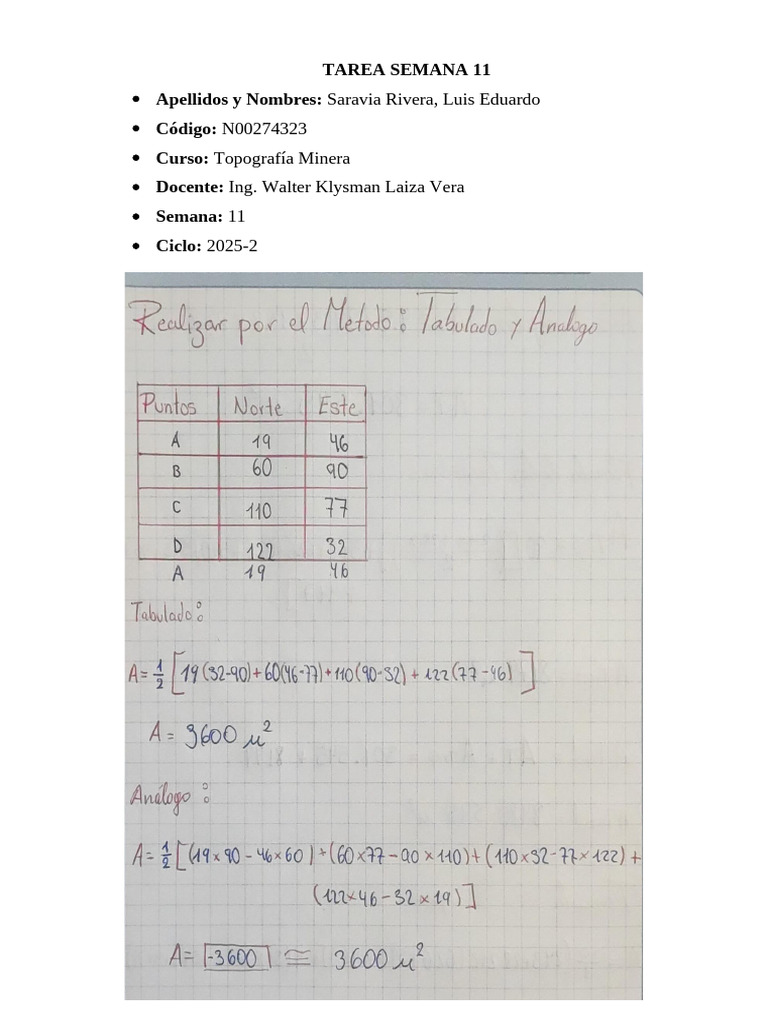 TAREA SEMANA 11
• Apellidos y Nombres: Saravia Rivera, Luis Eduardo
• Código: N00274323
• Curso: Topografía Minera
• Docente: Ing. Walter Klysman Laiza Vera
• Semana: 11
• Ciclo: 2025-2
Realizar por el Metodo: Tabulado y Analogo
Puntos Norte Este
A 19 46
B 60 90
C 110 77
D 122 32
A 19 46
Tabulado:
A = 1/2 [19(32-90)+60(46-77)+110(90-32)+122(77-46)]
A = 3600 m²
Análogo:
A = 1/2 [(19×90-46×60)+(60×77-90×110)+(110×32-77×122)+
(122×46-32×19)]
A = |-3600| ≅ 3600 m²